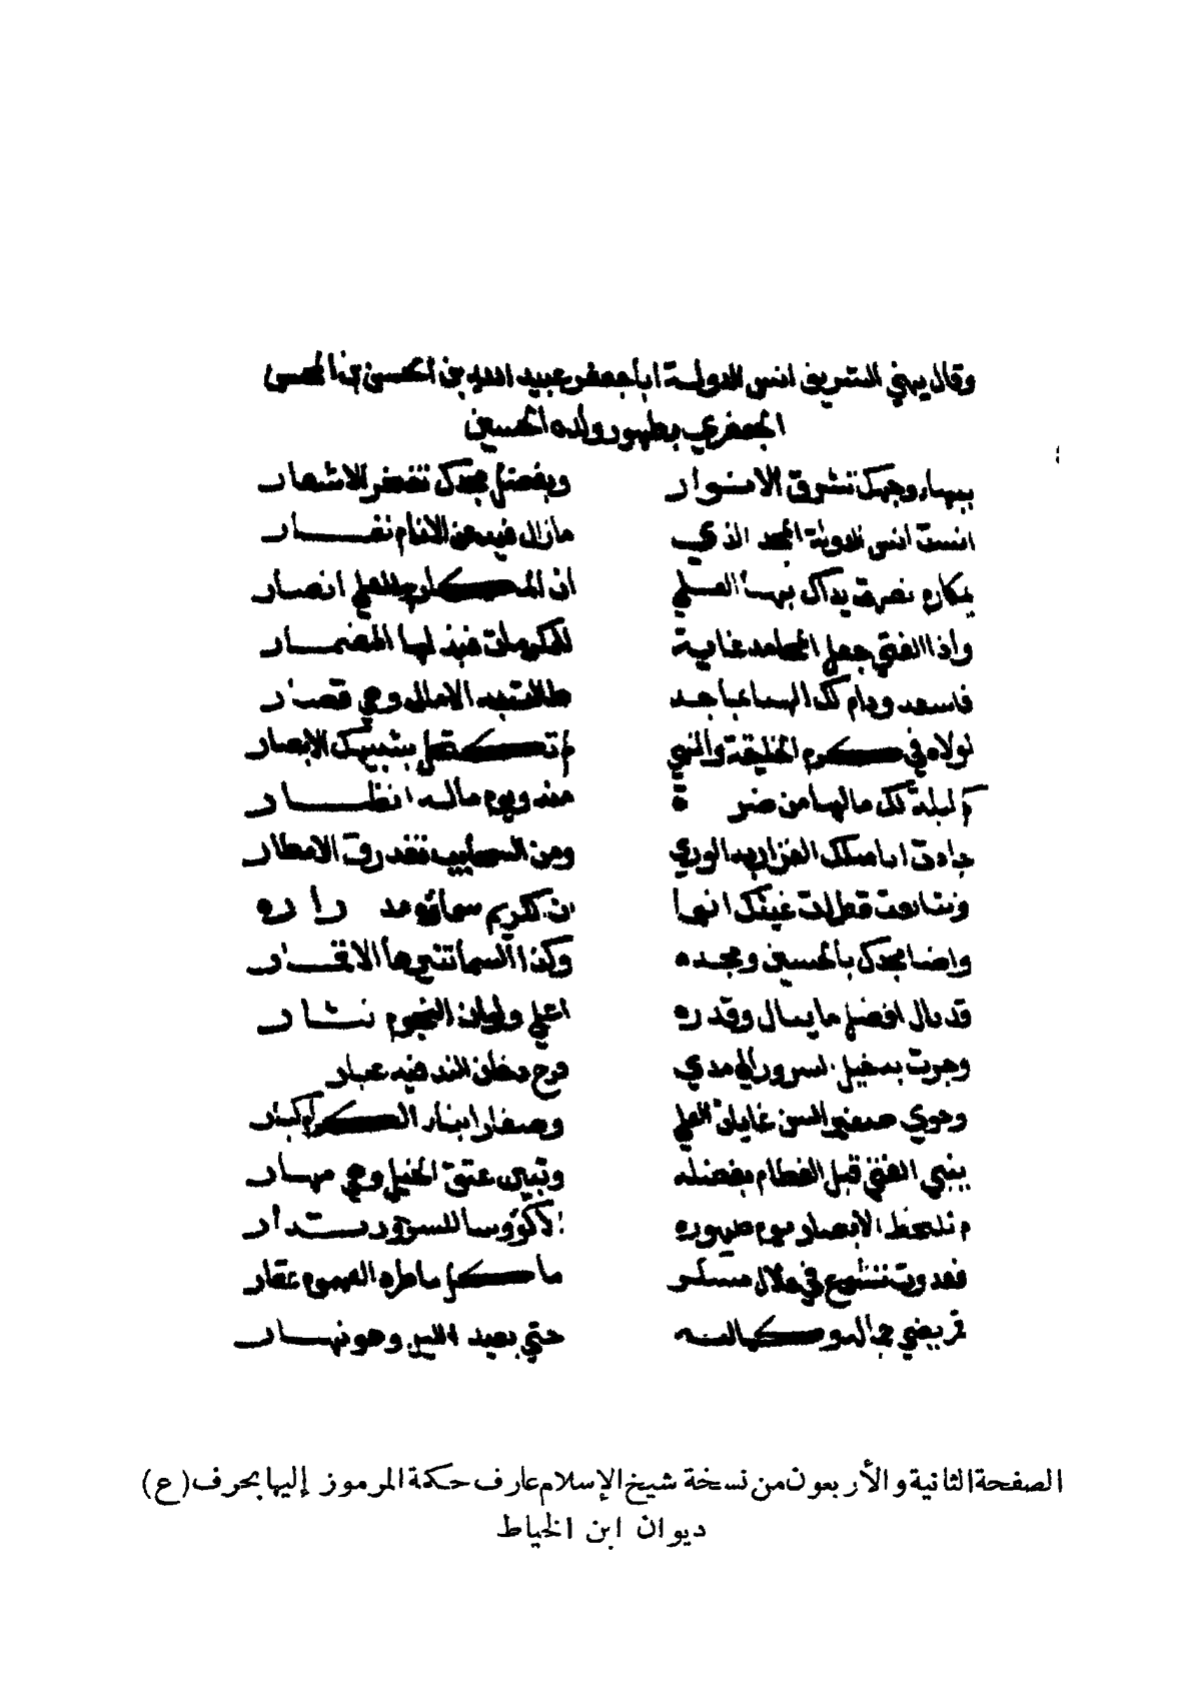 وقال يهني الشريف انس الدولة ابا جعفر عبيد الله بن الحسن بن المحسن
الجعفري بطهور ولده الحسين
ببهاء وجهك تشرق الانوار وبفضل مجدك تفخر الاشعار
انست انس الدولة المجد الذي مازال فيه عن الانام نفار
بمكارم نصرت يداك بها العلي ان المكارم للعلي انصار
واذا الفتي جعل المحامد غاية للمكرمات فبذلها المضمار
فاسعد ودام لك الهنا بماجد طالت به الامال وهي قصار
لولاه في كرم الخليقة والنهي لم تكتحل بشبيهك الابصار
كم ليلة لك مالها من ضرة منه ويوم ماله انظار
جادت اناملك الغزار به الوري ومن السحايب تغدق الامطار
وتتابعت قطرات غيثك انها ان الكريم سماؤه مدراره
واضا مجدك بالحسين ومجده وكذا السما تنيرها الاقمار
قد نال افضل ما ينال وقدره اعلي ولو ان النجوم نثار
وجرت به خيل السرور الي مدي فرح دخان الند فيه غبار
وحوي صغير السن غايات العلي وصغار ابناء الكرام كبار
ينبي الفتي قبل الفطام بفضله وتبين عتق الخيل وهي مهار
لم تلحظ الابصار يوم طهوره الا كؤوسا للسرور تدار
فغدوت تشرع في حلال مسكر ما كل ما طرد الهموم عقار
قمر يضي جماله وكماله حتي يعيد الليل وهو نهار
الصفحة الثانية والأربعون من نسخة شيخ الإسلام عارف حكمة المرموز إليها بحرف (ع)
ديوان ابن الخياط